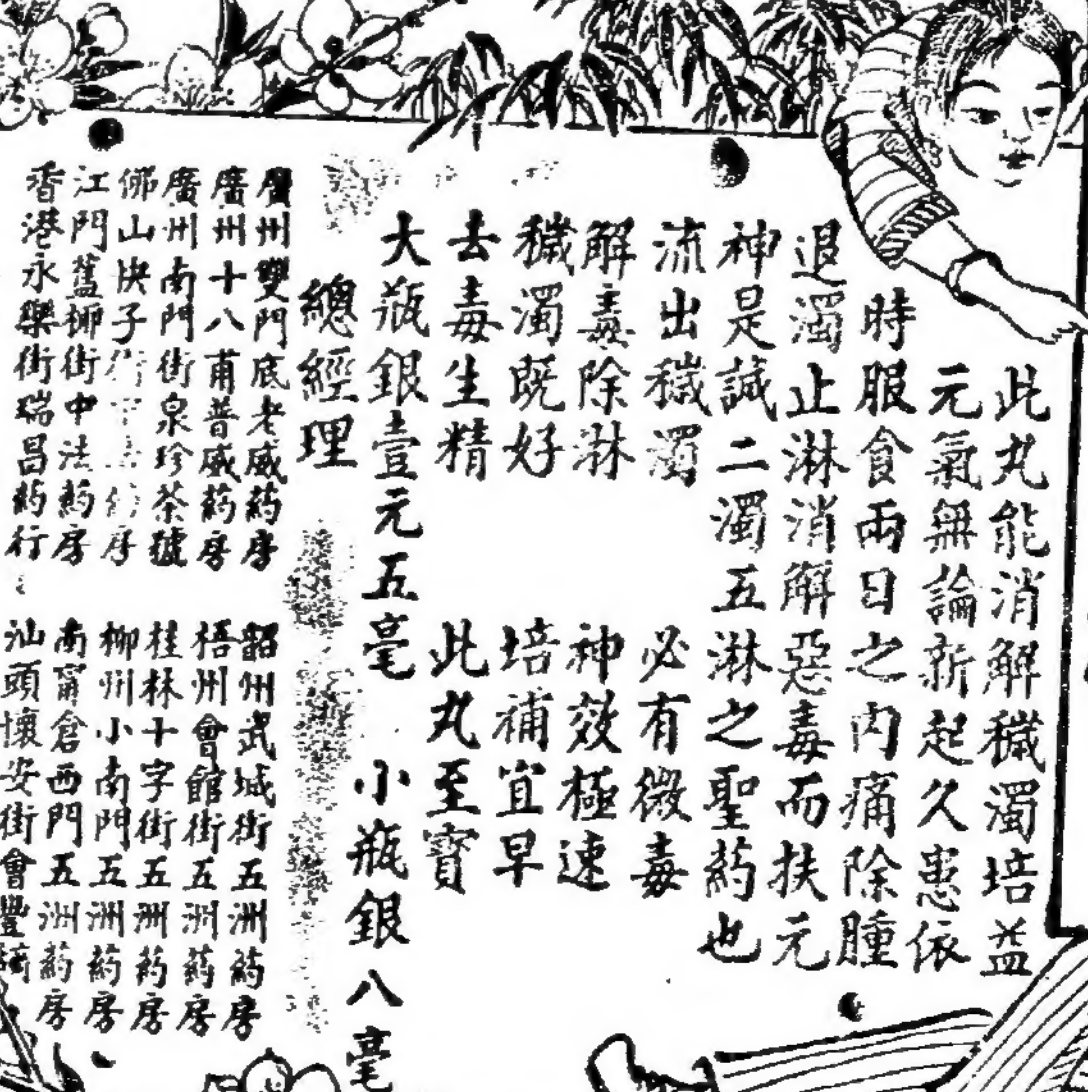 此丸能消解穢濁培益
元氣無論新起久患依
時服食兩日之內痛除腫
退濁止淋消解惡毒而扶元
神是誠二濁五淋之聖葯也
流出穢濁 必有微毒
解毒除淋 神效極速
穢濁既好 培補宜早
去毒生精 此丸至寶
大瓶銀壹元五毫 小瓶銀八毫
總經理
廣州雙門底老威葯房
廣州十八甫普威葯房
廣州南門街泉珍茶號
佛山快子街 葯房
江門舊柳街中法葯房
香港永樂街瑞昌葯行
韶州武城街五洲葯房
梧州會館街五洲葯房
桂林十字街五洲葯房
柳州小南門五洲葯房
南甯倉西門五洲葯房
汕頭懷安街會豐